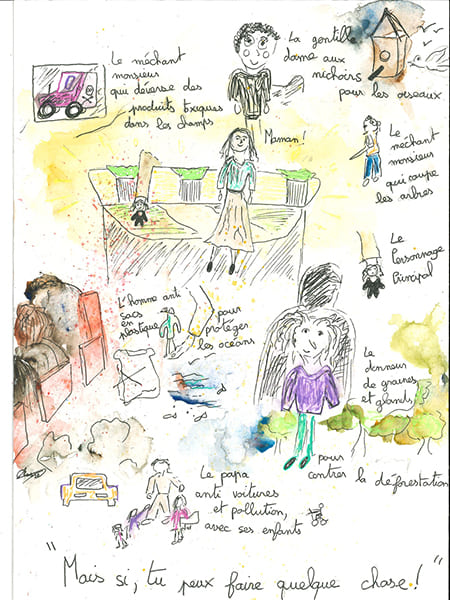 Le méchant
monsieur
qui déverse des
produits toxiques
dans les champs
La gentille
dame aux
nichoirs
pour les oiseaux
Maman !
Le
méchant
monsieur
qui coupe
les arbres
Le
Personnage
Principal
L'homme anti
sacs
en
plastique
pour
protéger
les océans
Le
donneur
de graines
et glands
pour
contrer la déforestation
Le papa
anti voitures
et pollution,
avec ses enfants
"Mais si, tu peux faire quelque chose !"